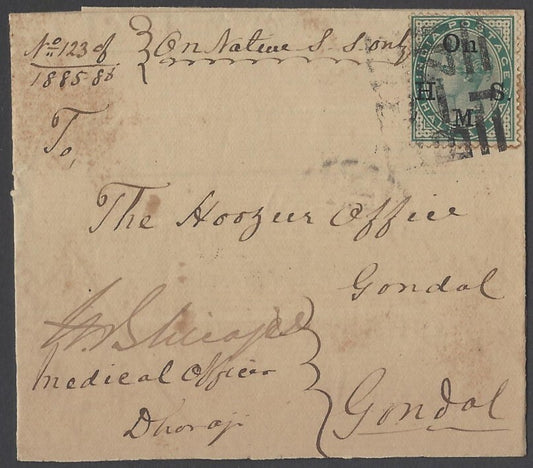 No 123 of
1885 86
On Native S. S. only
INDIA POSTAGE
On
H S
M
HALF
To,
The Hoozur Office
Gondal
Medical Officer
Dhoraji
Gondal